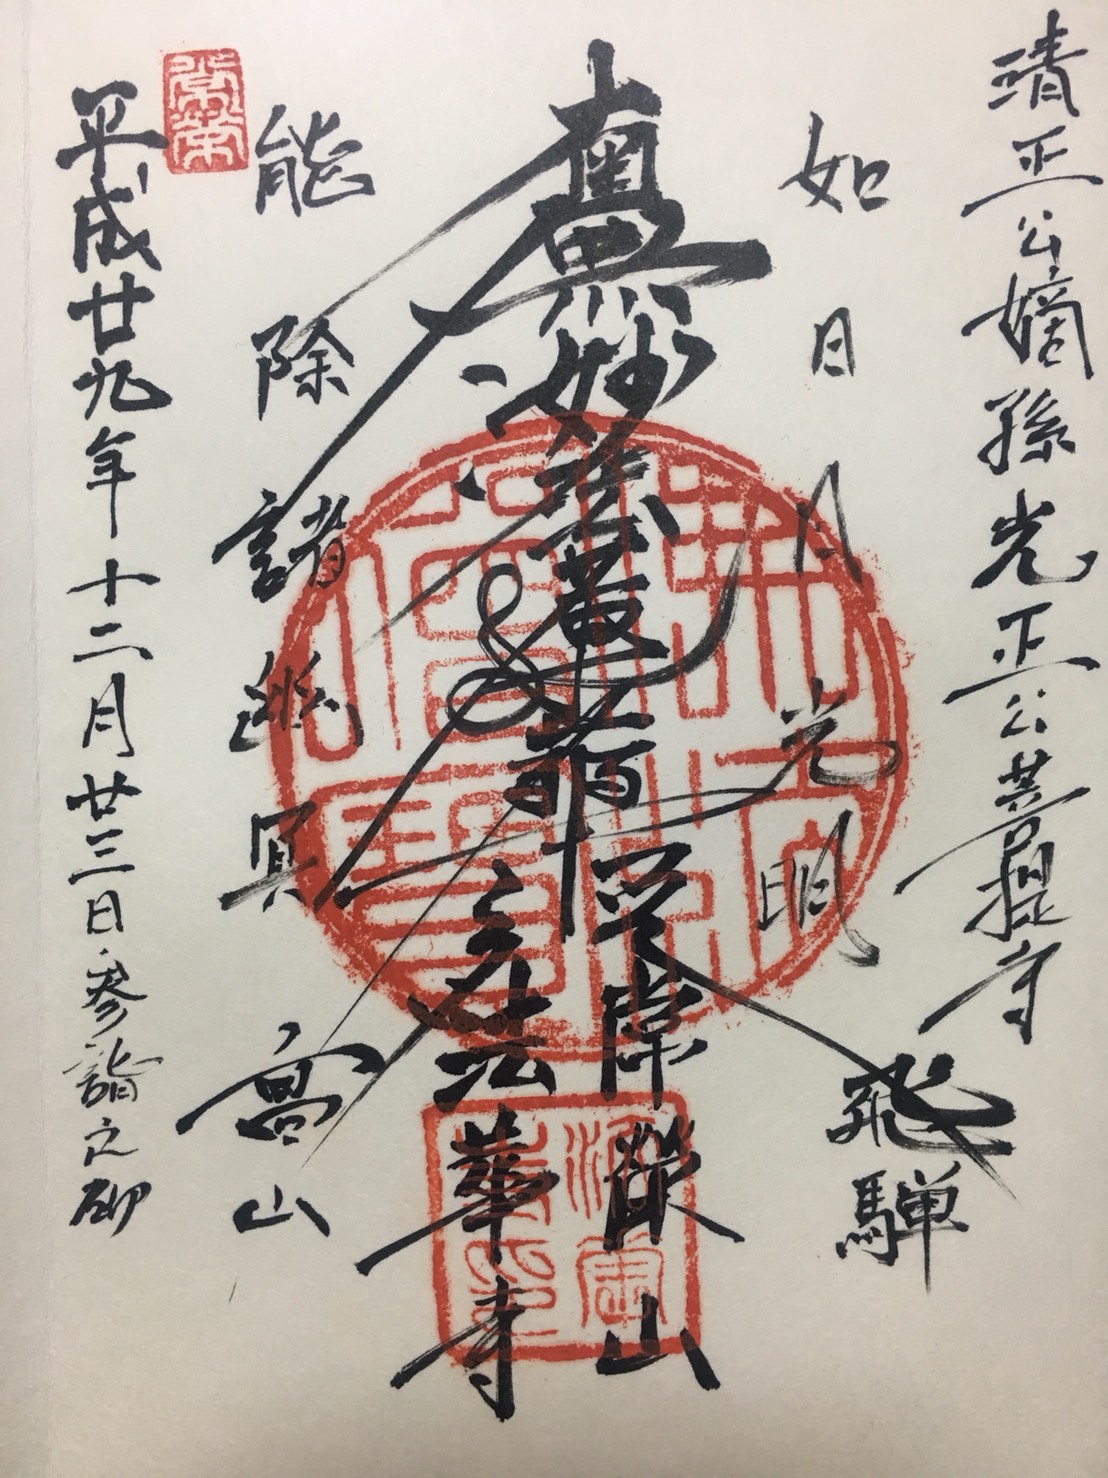 清正公嫡孫光正公菩提寺
如日月光明
飛騨
南無妙法蓮華経
岸榮山
法華寺
能除諸幽冥
高山
平成廿九年十二月廿三日参詣之砌